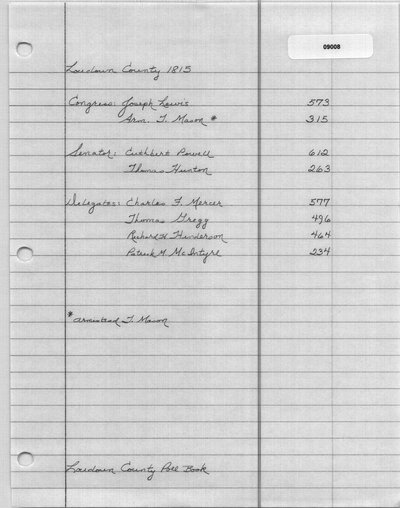 09008
Loudoun County 1815
Congress: Joseph Lewis 573
Arm. T. Mason * 315
Senator: Cuthbert Powell 612
Thomas Hunton 263
Delegates: Charles F. Mercer 577
Thomas Gregg 496
Richard H Henderson 464
Patrick M. McIntyre 234
* Armistead T. Mason
Loudoun County Poll Book